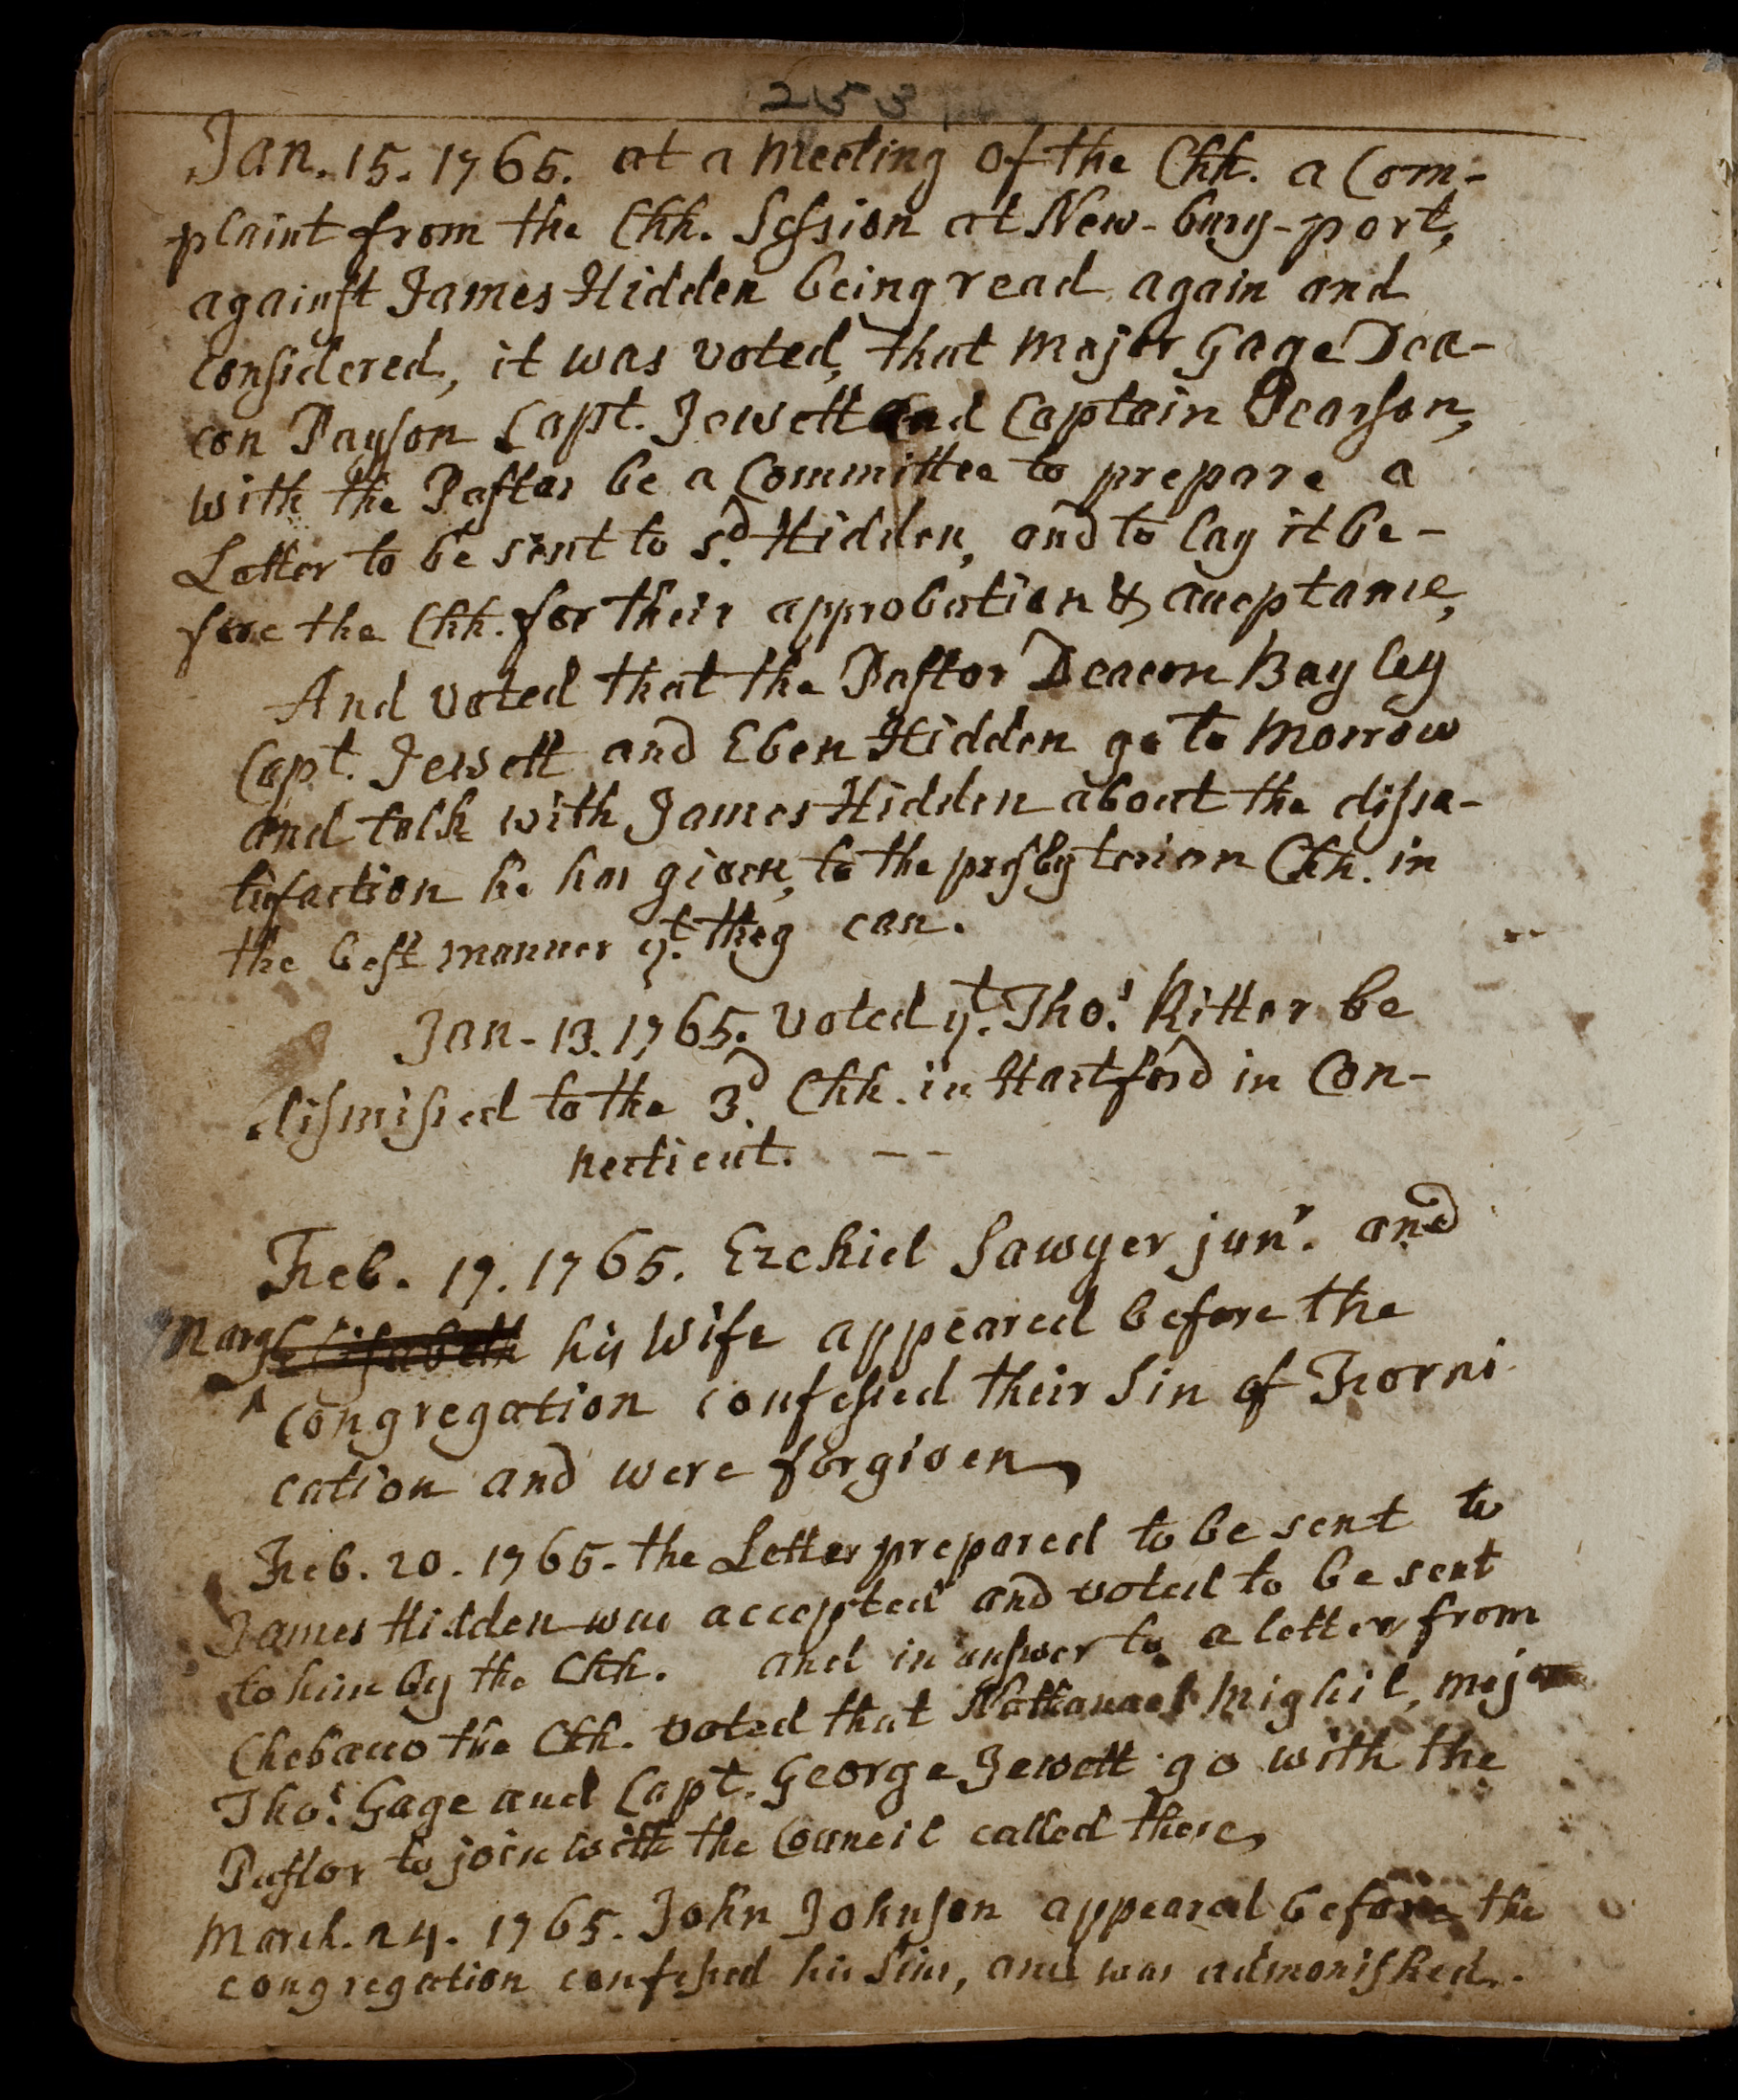 253
Jan. 15. 1765. at a meeting of the Chh. a Com-
plaint from the Chh. Session at New-bury-port,
against James Hidden being read again and
considered, it was voted, that Major Gage Dea-
con Payson Capt. Jewett and Captain Pearson,
with the Pastor be a Committee to prepare a
Letter to be sent to sd. Hidden, and to lay it be-
fore the Chh. for their approbation & acceptance,
And voted that the Pastor Deacon Bayley
Capt. Jewett and Eben Hidden go to Morrow
and talk with James Hidden about the dissa-
tisfaction he has given, to the presbyterian Chh. in
the best manner yt. they can.
Jan. 13. 1765. voted yt. Thos. Ritter be
dismissed to the 3d. Chh. in Hartford in Con-
necticut. --
Feb. 17. 1765. Ezekiel Sawyer junr. and
Mary Elisabeth his Wife appeared before the
^ congregation confessed their Sin of Forni
cation and were forgiven,
Feb. 20. 1765. the Letter prepared to be sent to
James Hidden was accepted and voted to be sent
to him by the Chh. and in answer to a letter from
Chebacco the Chh. voted that Nathanael Mighil, Major
Thos. Gage and Capt. George Jewett go with the
Pastor to join with the Council called there,
March. 24. 1765. John Johnson appeared before the
congregation confessed his Sins, and was admonished.